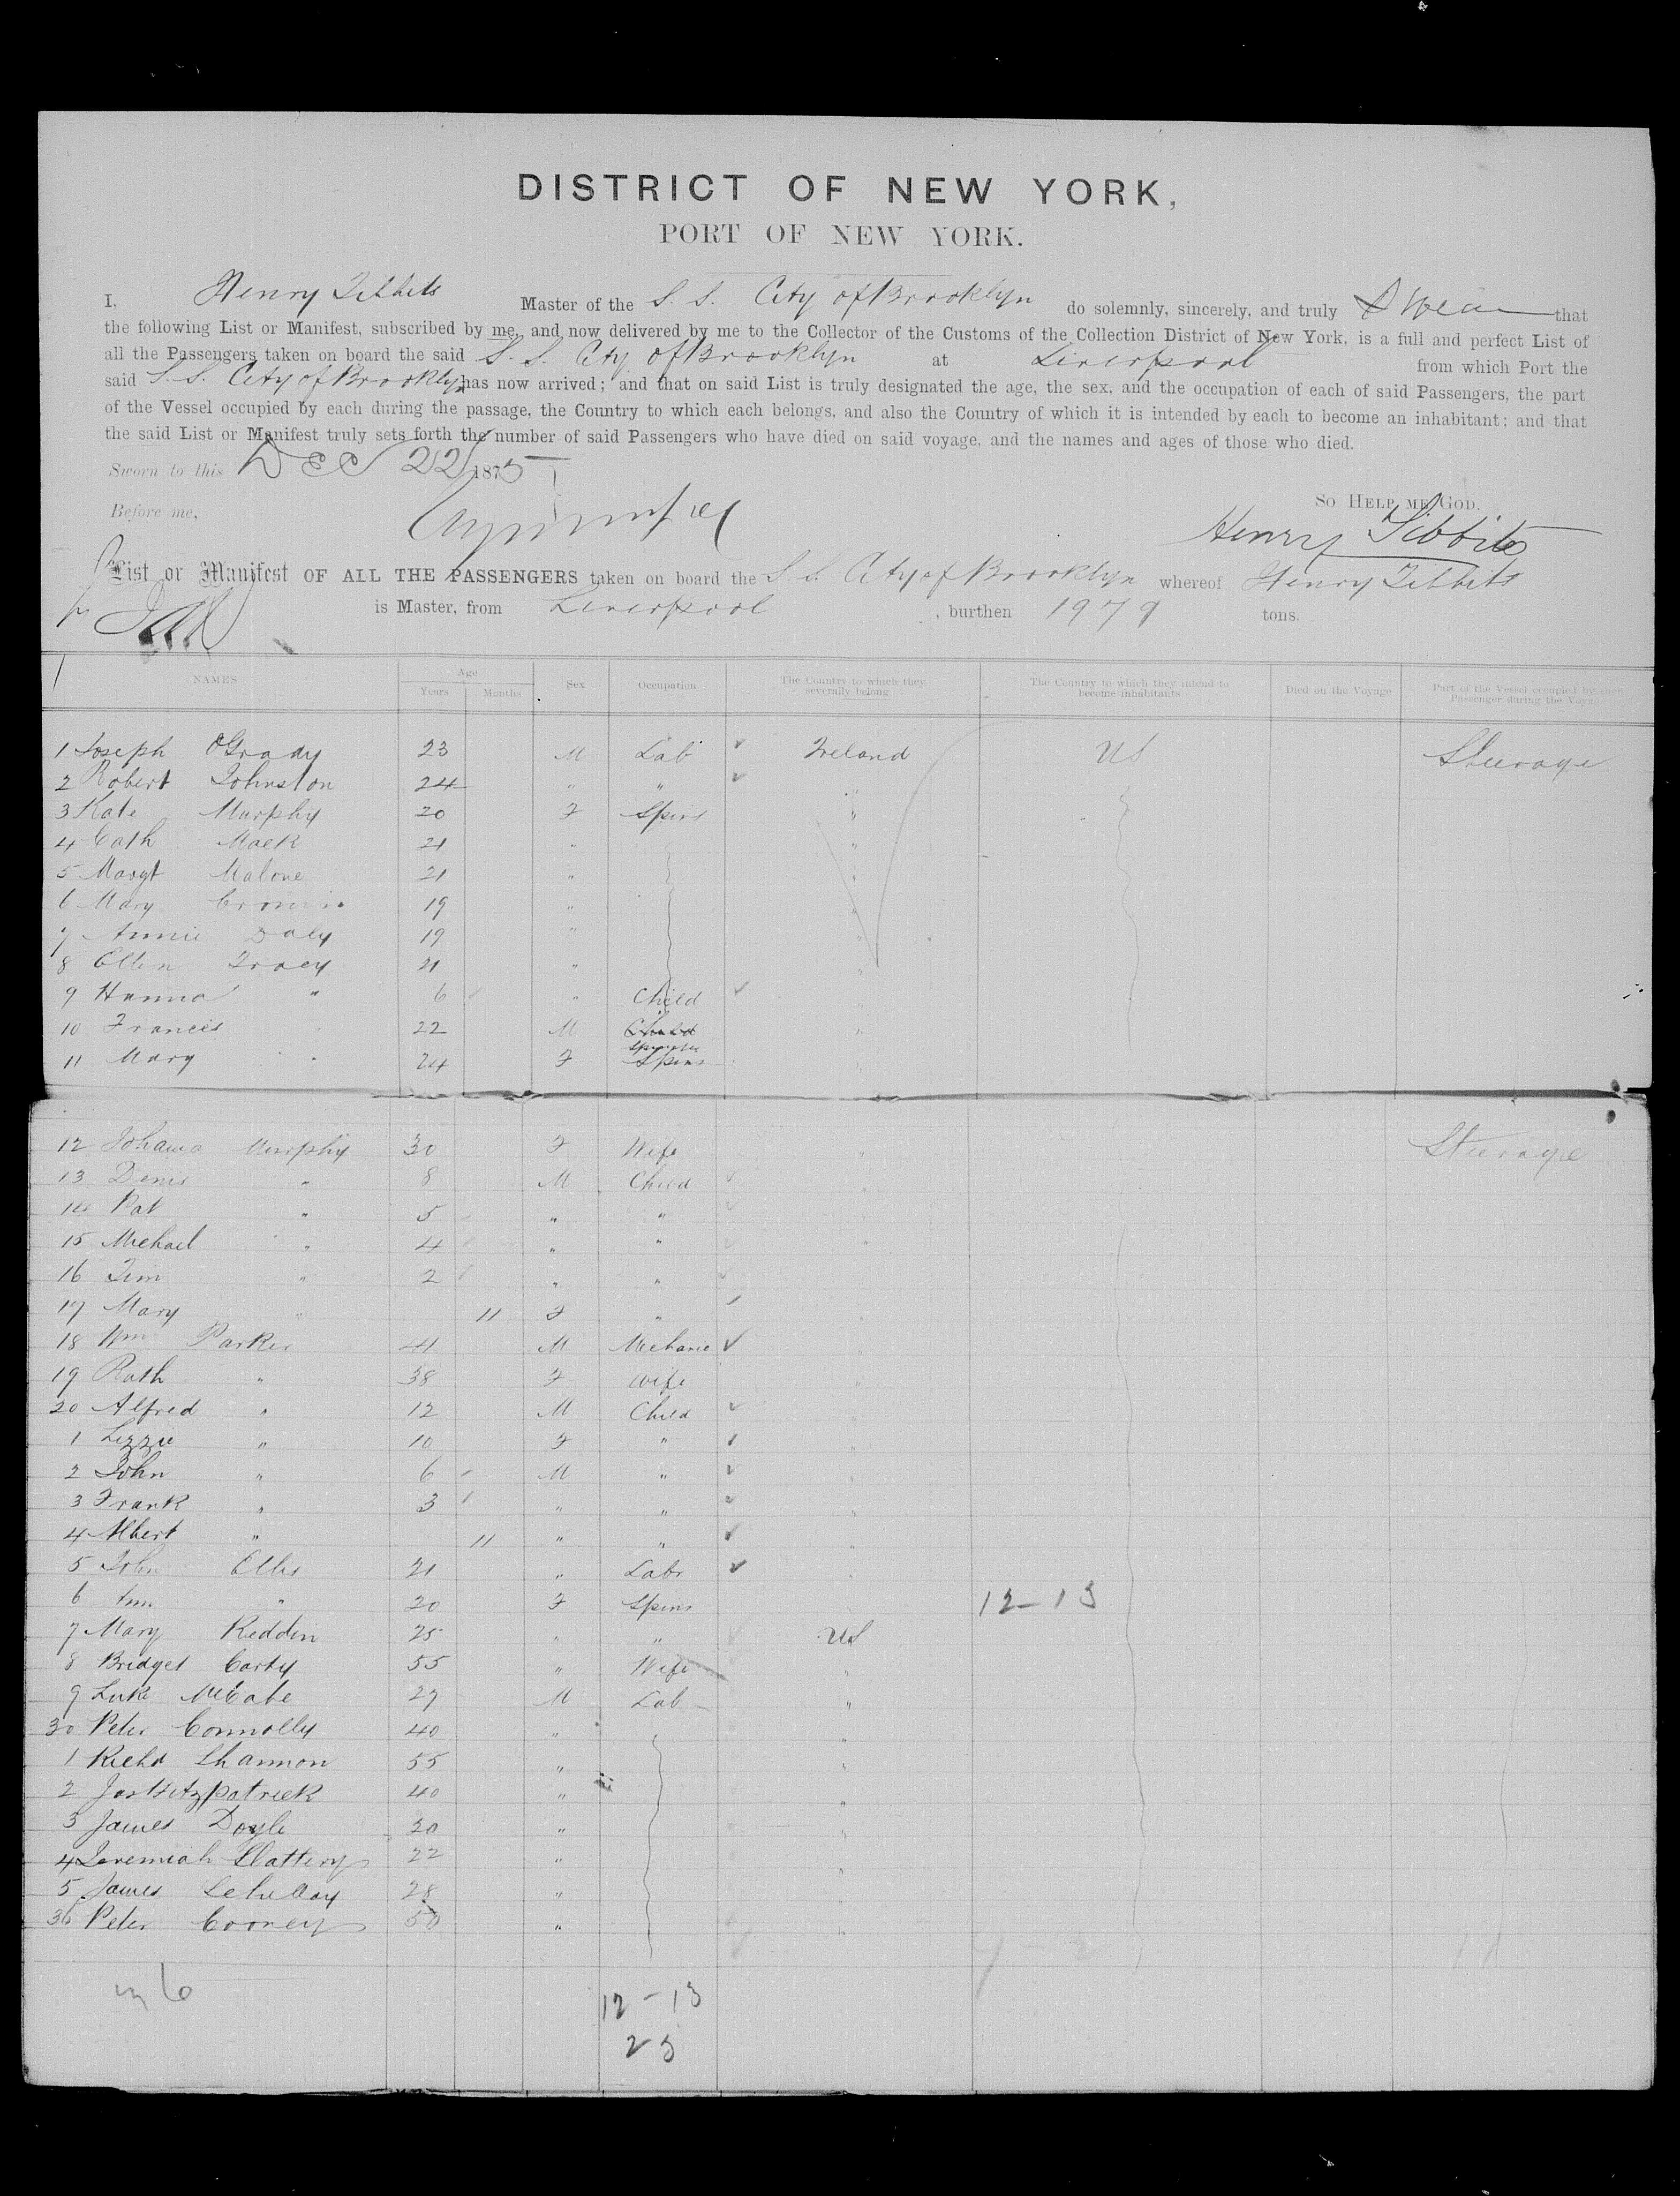 DISTRICT OF NEW YORK,
PORT OF NEW YORK.
I, Henry Tibbits Master of the S. S. City of Brooklyn do solemnly, sincerely, and truly Swear that
the following List or Manifest, subscribed by me, and now delivered by me to the Collector of the Customs of the Collection District of New York, is a full and perfect List of
all the Passengers taken on board the said S. S. City of Brooklyn at Liverpool from which Port the
said S.S. City of Brooklyn has now arrived; and that on said List is truly designated the age, the sex, and the occupation of each of said Passengers, the part
of the Vessel occupied by each during the passage, the Country to which each belongs, and also the Country of which it is intended by each to become an inhabitant; and that
the said List or Manifest truly sets forth the number of said Passengers who have died on said voyage, and the names and ages of those who died.
Sworn to this Dec 22 1875
So Help me God.
Before me,
Henry Tibbits
List or Manifest OF ALL THE PASSENGERS taken on board the S.S. City of Brooklyn whereof Henry Tibbits
is Master, from Liverpool, burthen 1979 tons.
NAMES Age Years Months Sex Occupation The Country to which they severally belong The Country to which they intend to become inhabitants Died on the Voyage Part of the Vessel occupied by each Passenger during the Voyage
1 Joseph O'Grady 23 M Lab Ireland US Steerage
2 Robert Johnston 24 " " "
3 Kate Murphy 20 F Spins "
4 Cath Mack 21 " "
5 Margt Malone 21 " "
6 Mary Cronin 19 " "
7 Annie Daly 19 " "
8 Ellen Tracy 21 " "
9 Hanna " 6 " Child
10 Francis 22 M Child "
11 Mary " 24 F Spins
12 Johanna Murphy 30 F Wife " Steerage
13 Denis " 8 M Child "
14 Pat " 5 " "
15 Michael " 4 " " "
16 Tim " 2 " "
17 Mary " 11 F "
18 Wm Parker 41 M Mechanic
19 Ruth " 38 F Wife "
20 Alfred " 12 M Child
1 Lizzie " 10 F "
2 John " 6 M "
3 Frank " 3 " "
4 Albert " 11 " "
5 John Ellis 21 " Labr
6 Ann " 20 F Spins 12-13
7 Mary Reddin 25 " " US
8 Bridget Carty 55 " Wife "
9 Luke McCabe 27 M Lab "
30 Peter Connolly 40 " "
1 Richd Shannon 55 " "
2 Jas Fitzpatrick 40 " "
3 James Doyle 30 " "
4 Jeremiah Slattery 22 " "
5 James 28 " "
36 Peter Cooney 50 " "
12-13
25